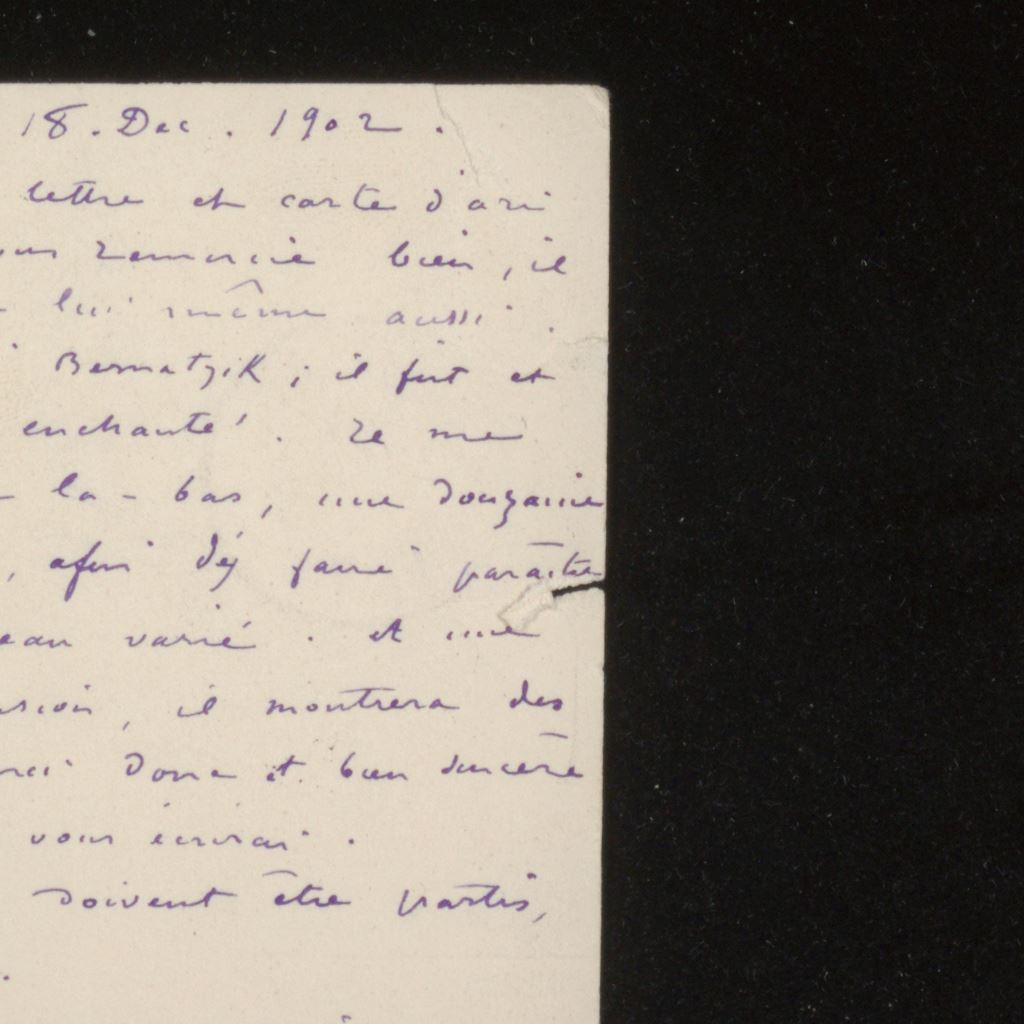 18. Dec. 1902.
lettre et carte d'ari
remercie bien, il
lui même aussi.
Bernatzik; il fut et
enchanté. Je me
la-bas, une douzaine
, afin d'y faire paraître
varié. et une
, il montrera des
donc et bien sincère
vous écrirai.
doivent être partis,